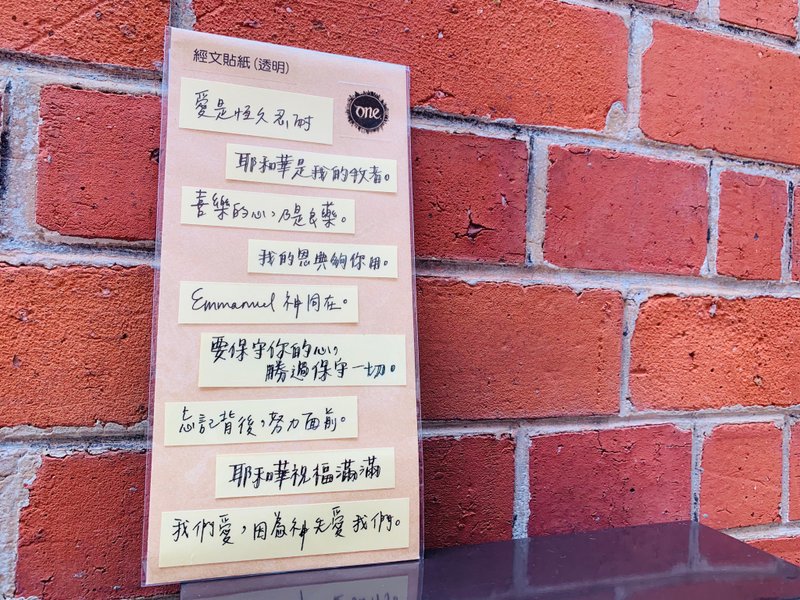 經文貼紙(透明)
one
愛是恆久忍耐
耶和華是我的牧者。
喜樂的心,乃是良藥。
我的恩典夠你用。
Emmanuel 神同在。
要保守你的心,
勝過保守一切。
忘記背後,努力面前。
耶和華祝福滿滿
我們愛,因為神先愛我們。